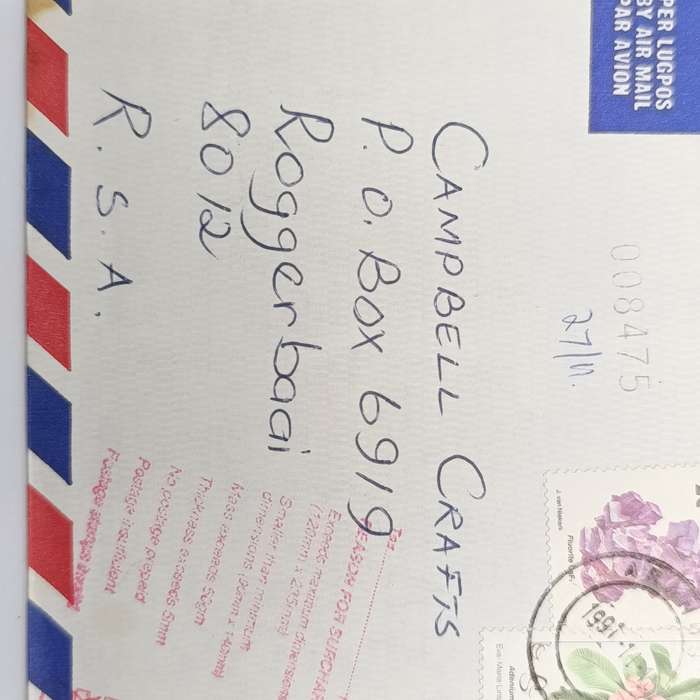 PER LUGPOS
BY AIR MAIL
PAR AVION
008475
27/11.
CAMPBELL CRAFTS
P.O. BOX 6919
Roggerbaai
8012
R.S.A.
J. van Niekerk Fluorite CaF₂
1991
Adenium
REASON FOR SURCHAR
Exceeds maximum dimensions
(120mm x 235mm)
Smaller than minimum
dimensions (90mm x 140mm)
Mass exceeds 50gm
Thickness exceeds 5mm
No postage prepaid
Postage insufficient